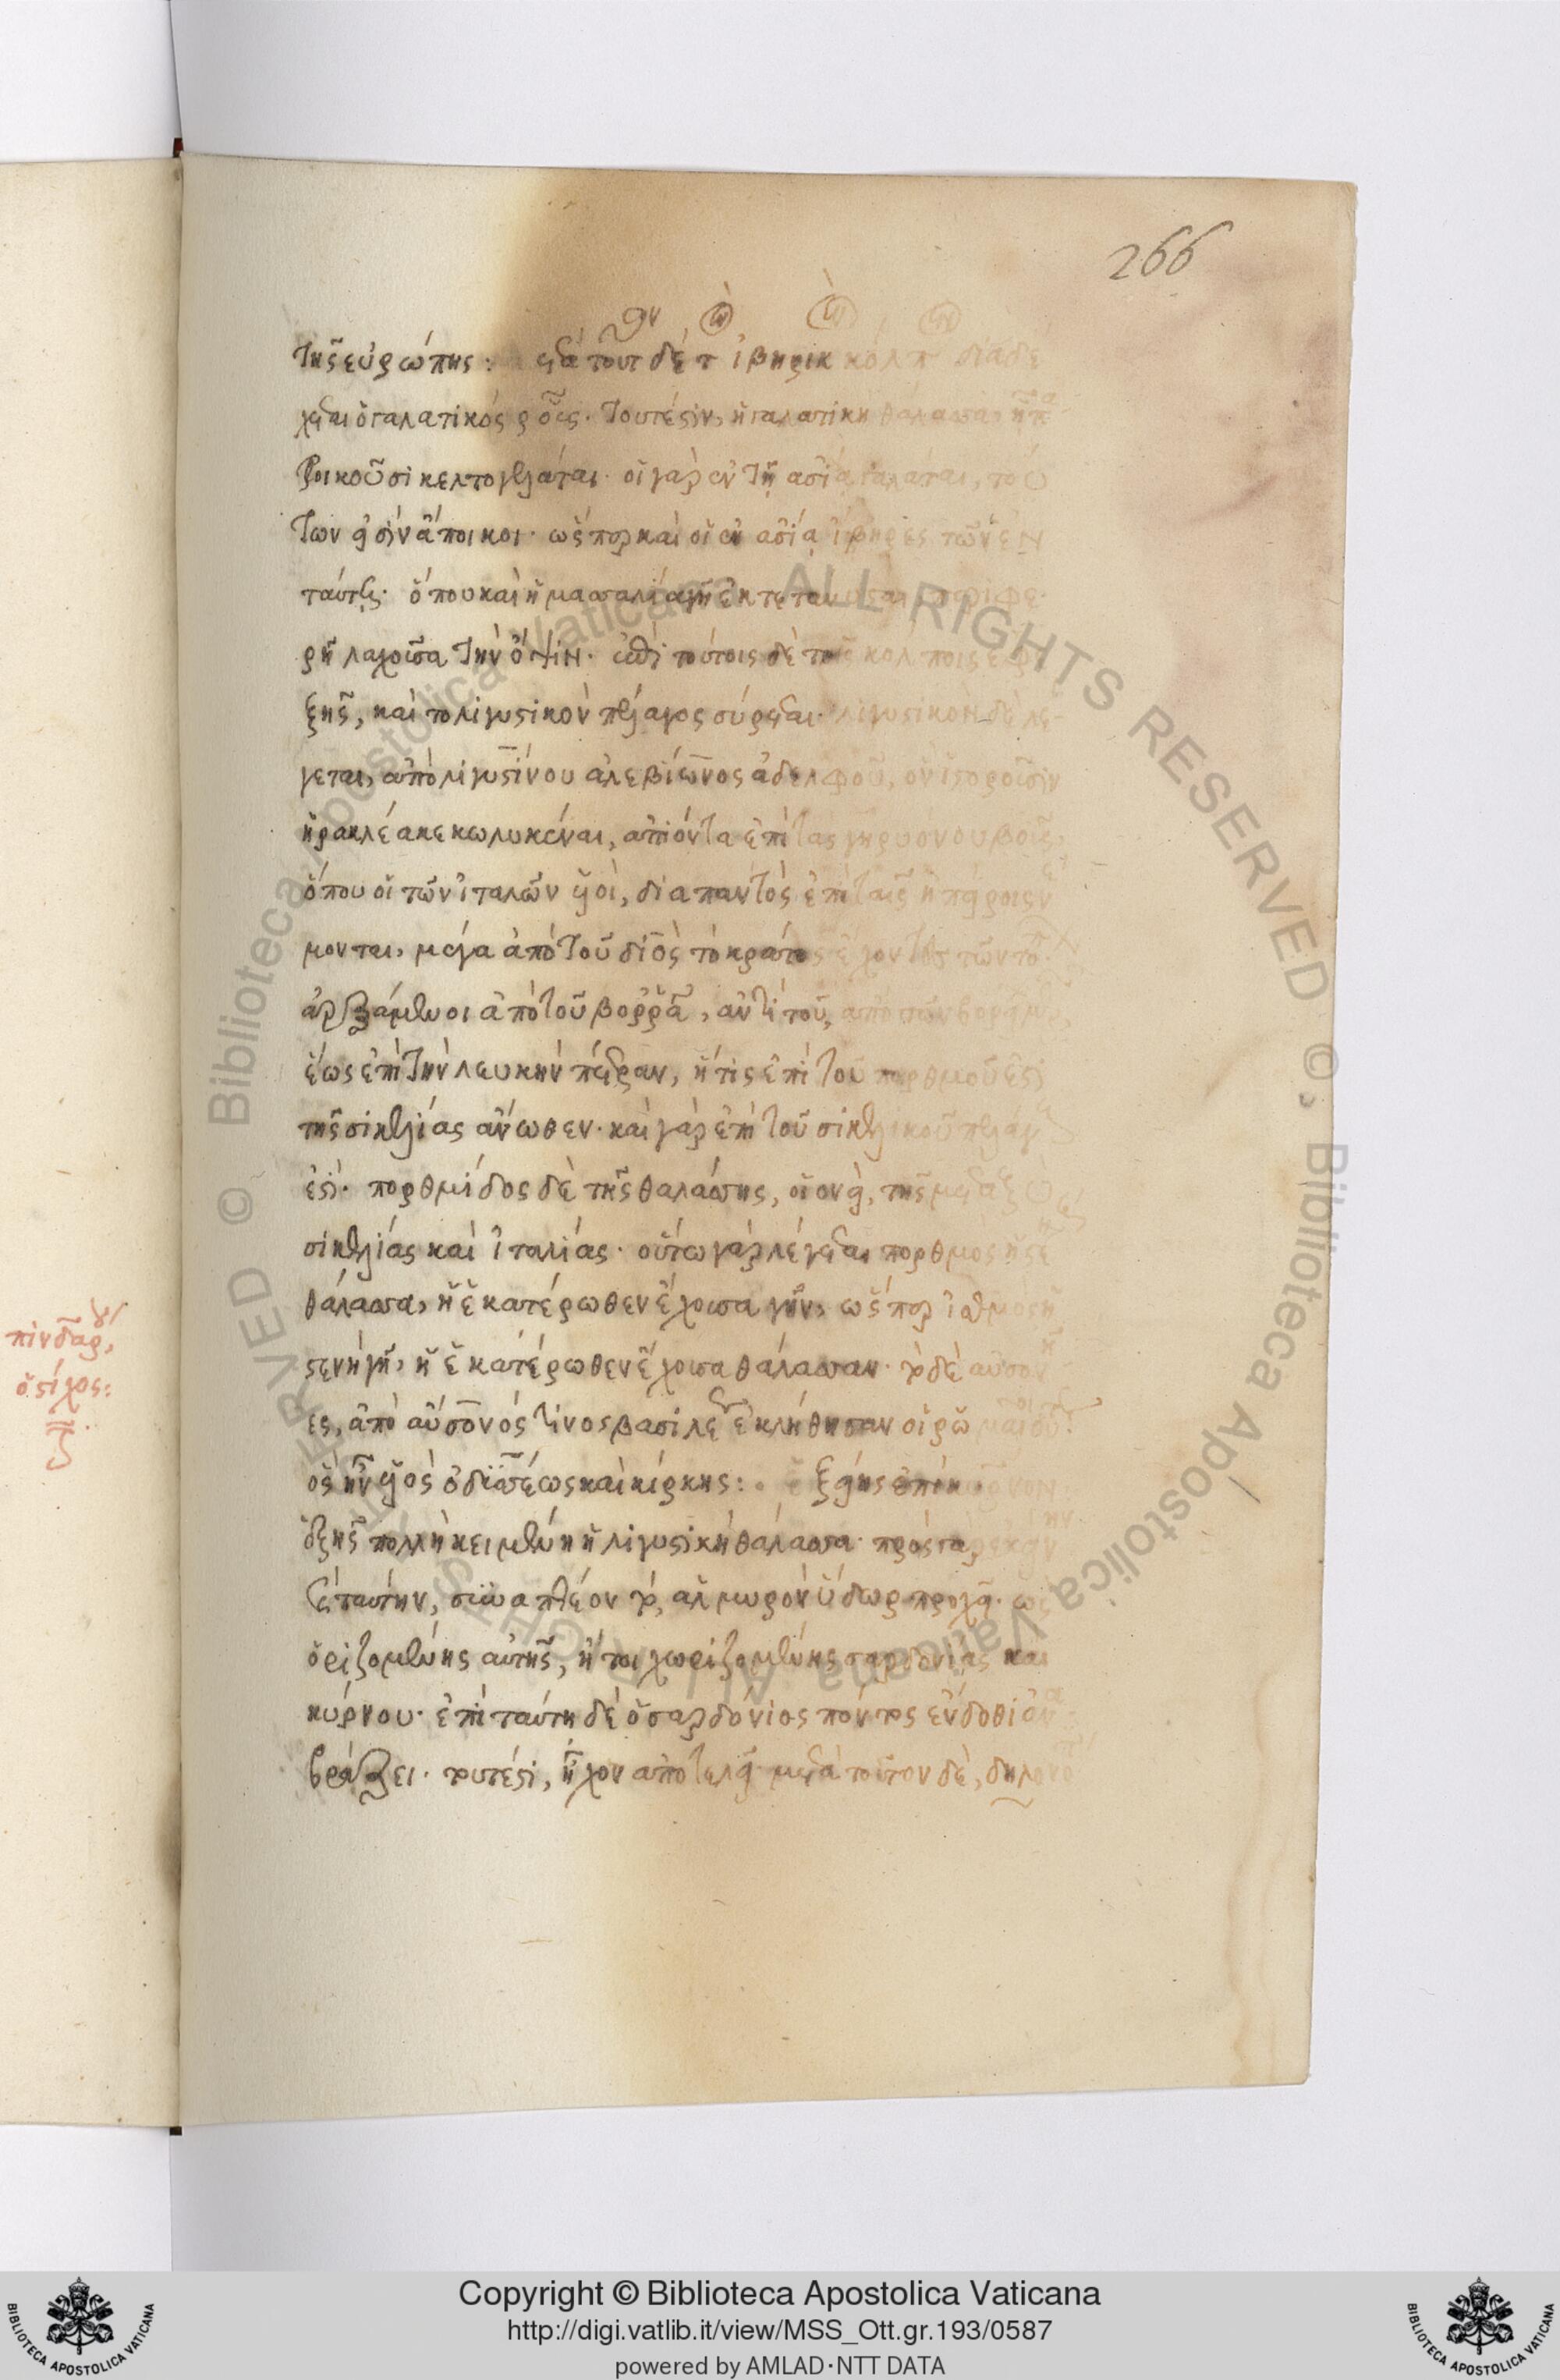 266
τῆς εὐρώπης: μετὰ τοῦτον δὲ τὸν ἰβηρικὸν κόλπον διαδέ
χεται ὁ γαλατικὸς ῥοῦς. τουτέστιν, ἡ γαλατικὴ θάλασσα,
οἰκοῦσι κελτογαλάται. οἱ γὰρ ἐν τῇ ἀσίᾳ γαλάται, τού
των εἰσὶν ἄποικοι. ὥσπερ καὶ οἱ ἐν ἀσίᾳ ἴβηρες τῶν ἐν
ταῦθα. ὅπου καὶ ἡ μασσαλία γῆ ἐκτετάνυσται περιφε
ρῆ λαχοῦσα τὴν ὄψιν. ἐπὶ τούτοις δὲ τοῖς κόλποις ἐφε
ξῆς, καὶ τὸ λιγυστικὸν πέλαγος σύρεται. λιγυστικὸν δὲ λέ
γεται, ἀπὸ λιγυστίνου ἀλεβίωνος ἀδελφοῦ, ὅν ἱστοροῦσιν
ἡρακλέα κεκωλυκέναι, ἀπιόντα ἐπὶ τὰς γηρυόνου βοῦς,
ὅπου οἱ τῶν ἰταλῶν υἱοὶ, διαπαντὸς ἐπὶ ταῖς ἠπείροις νέ
μονται, μέγα ἀπὸ τοῦ διὸς τὸ κράτος ἔχοντες τῶν τόπων
ἀρξάμενοι ἀπὸ τοῦ βορρᾶ, ἀντὶ τοῦ, ἀπὸ τῶν βορείων
ἕως ἐπὶ τὴν λευκὴν πέτραν, ἥτις ἐπὶ τοῦ πορθμοῦ ἐστὶ
τῆς σικελίας ἄνωθεν. καὶ γὰρ ἐπὶ τοῦ σικελικοῦ πελάγους
ἐστί. πορθμίδος δὲ τῆς θαλάσσης, οἱονεὶ, τῆς μεταξὺ
σικελίας καὶ ἰταλίας. οὕτω γὰρ λέγεται πορθμὸς ἡ στε
θάλασσα, ἡ ἑκατέρωθεν ἔχουσα γῆν, ὥσπερ ἰσθμὸς ἡ
στενὴ γῆ, ἡ ἑκατέρωθεν ἔχουσα θάλασσαν. τὸ δὲ αὔσονῆ
ες, ἀπὸ αὔσονός τινος βασιλέως ἐκλήθησαν οἱ ῥωμαῖοι οὕτως
ὃς ἦν υἱὸς ὀδυσσέως καὶ κίρκης: ἑξείης ἐπὶ κύρνον
ἑξῆς πολλὴ κειμένη ἡ λιγυστικὴ θάλασσα πρὸς
ταύτην, σκεῦα πλέον τὸ, ἁλμυρὸν ὕδωρ προχεῖ. ὡς
ὁριζομένης αὐτῆς, ἤτοι χωριζομένης σαρδονίας καὶ
κύρνου. ἐπὶ ταύτῃ δὲ ὁ σαρδόνιος πόντος ἔνδοθι ἀνα
βράζει. τουτέστι, ἦχον ἀποτελεῖ μετὰ τοῦτον δὲ, δηλονότι
πίνδαρος,
ὁ στίχος:
Copyright © Biblioteca Apostolica Vaticana
http://digi.vatlib.it/view/MSS_Ott.gr.193/0587
powered by AMLAD·NTT DATA
BIBLIOTECA APOSTOLICA VATICANA
BIBLIOTECA APOSTOLICA VATICANA